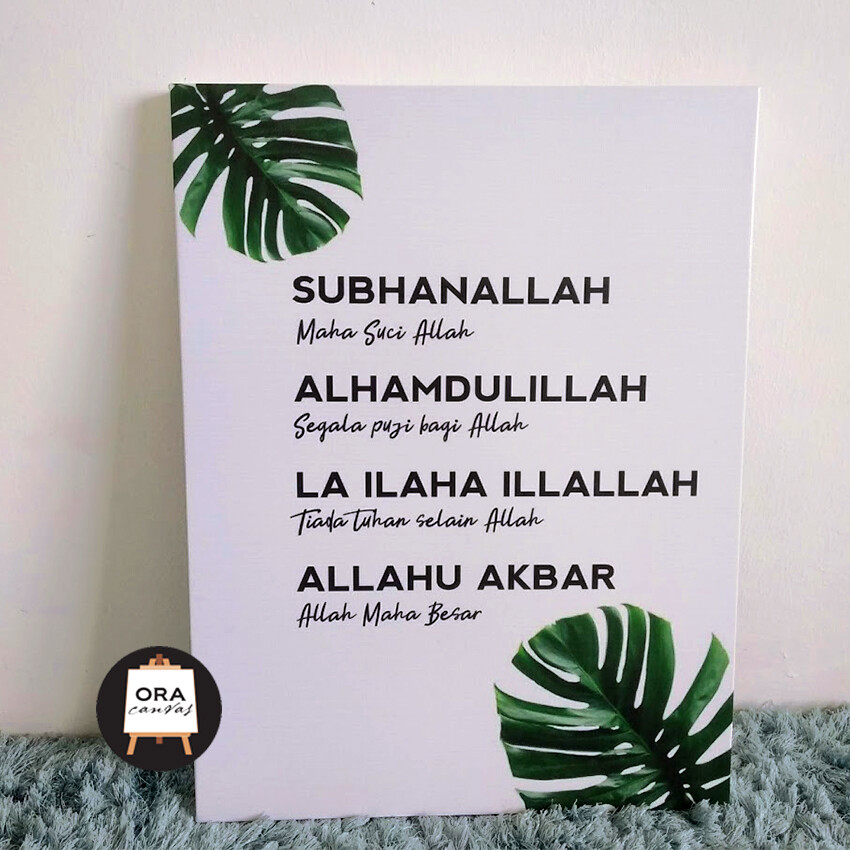 SUBHANALLAH
Maha Suci Allah
ALHAMDULILLAH
Segala puji bagi Allah
LA ILAHA ILLALLAH
Tiada Tuhan selain Allah
ALLAHU AKBAR
Allah Maha Besar
ORA
canvas